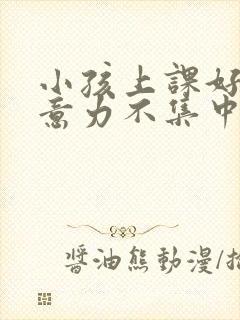 小孩上課好
意力不集中
醬油熊動漫/插